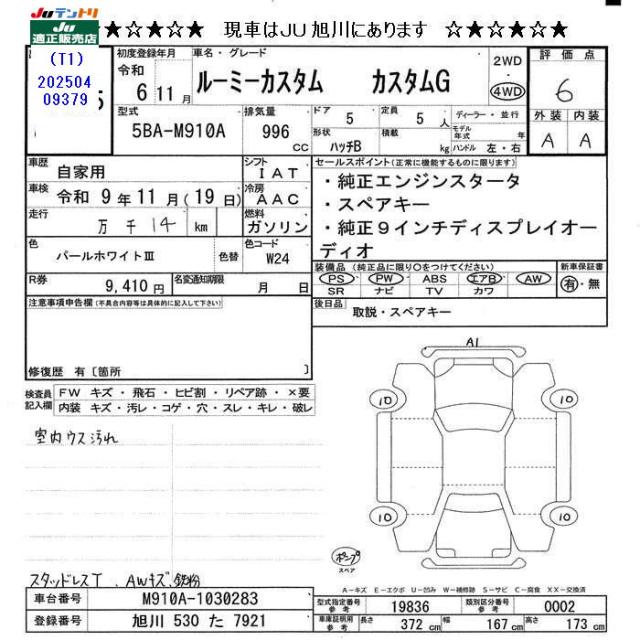 JUテントリ ★☆★☆★ 現車はJU旭川にあります ☆★☆★☆★
JU
適正販売店
(T1)
202504
09379
初度登録年月
令和
6 11月
車名・グレード
ルーミーカスタム カスタムG
2WD
4WD
評価点
6
外装 内装
A A
型式
5BA-M910A
排気量
996
CC
ドア
5
定員
5 人
形状
ハッチB
積載
kg
ディーラー・並行
モデル年式 年
ハンドル 左・右
車歴
自家用
シフト
IAT
車検
令和 9年11月(19日)
冷房
AAC
走行
万 千 14 km
燃料
ガソリン
色
パールホワイトⅢ
色替
色コード
W24
R券
9,410 円
名変通知期限
月 日
セールスポイント(正常に機能するものに限ります)
・純正エンジンスタータ
・スペアキー
・純正9インチディスプレイオー
ディオ
装備品(純正品に限り〇をつけてください)
PS PW ABS エアB AW
SR ナビ TV カワ
新車保証書
有・無
後日品
取説・スペアキー
注意事項申告欄(不具合内容等は具体的に記入して下さい)
修復歴 有〔箇所 〕
検査員
記入欄
FW キズ・飛石・ヒビ割・リペア跡・×要
内装 キズ・汚レ・コゲ・穴・スレ・キレ・破レ
室内ウス汚れ
スタッドレスT、AWキズ、鉄粉
A1
10
10
10
10
ポンプ
スペア
A－キズ E－エクボ U－凹み W－補修跡 S－サビ C－腐食 XX－交換済
車台番号 M910A-1030283
登録番号 旭川 530 た 7921
型式指定番号
参考
19836
類別区分番号
参考
0002
車庫証明用
参考
長さ 372 cm 幅 167 cm 高さ 173 cm